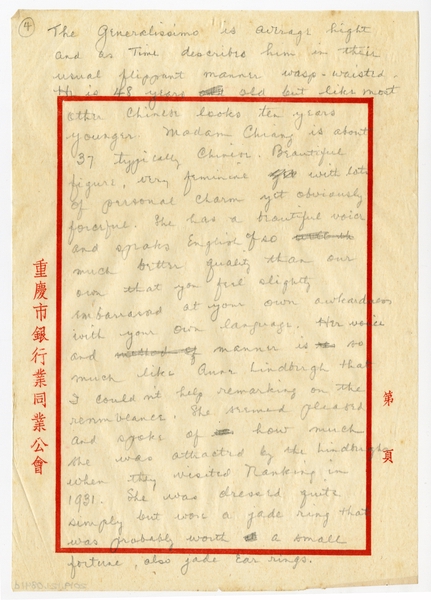 4
The Generalissimo is average hight
and as Time describes him in their
usual flippant manner wasp-waisted.
He is 48 years old but like most
othre Chinese looks ten years
younger. Madam Chiang is about
37 typically Chinese. Beautiful
figure, very feminine with lots
of personal charm yet obviously
forceful. She has a beautiful voice
and speaks English of so
much better quality than our
own that you feel slightly
embarrassed at your own awkardness
with your own language. Her voice
and method of manner is so
much like Anne Lindburgh that
I couldn't help remarking on the
resemblance. She seemed pleased
and spoke of how much
she was attracted by the Lindburghs
when they visited Nanking in
1931. She was dressed quite
simply but wore a jade ring that
was probably worth a small
fortune, also jade ear rings.
重慶市銀行業同業公會
第 頁